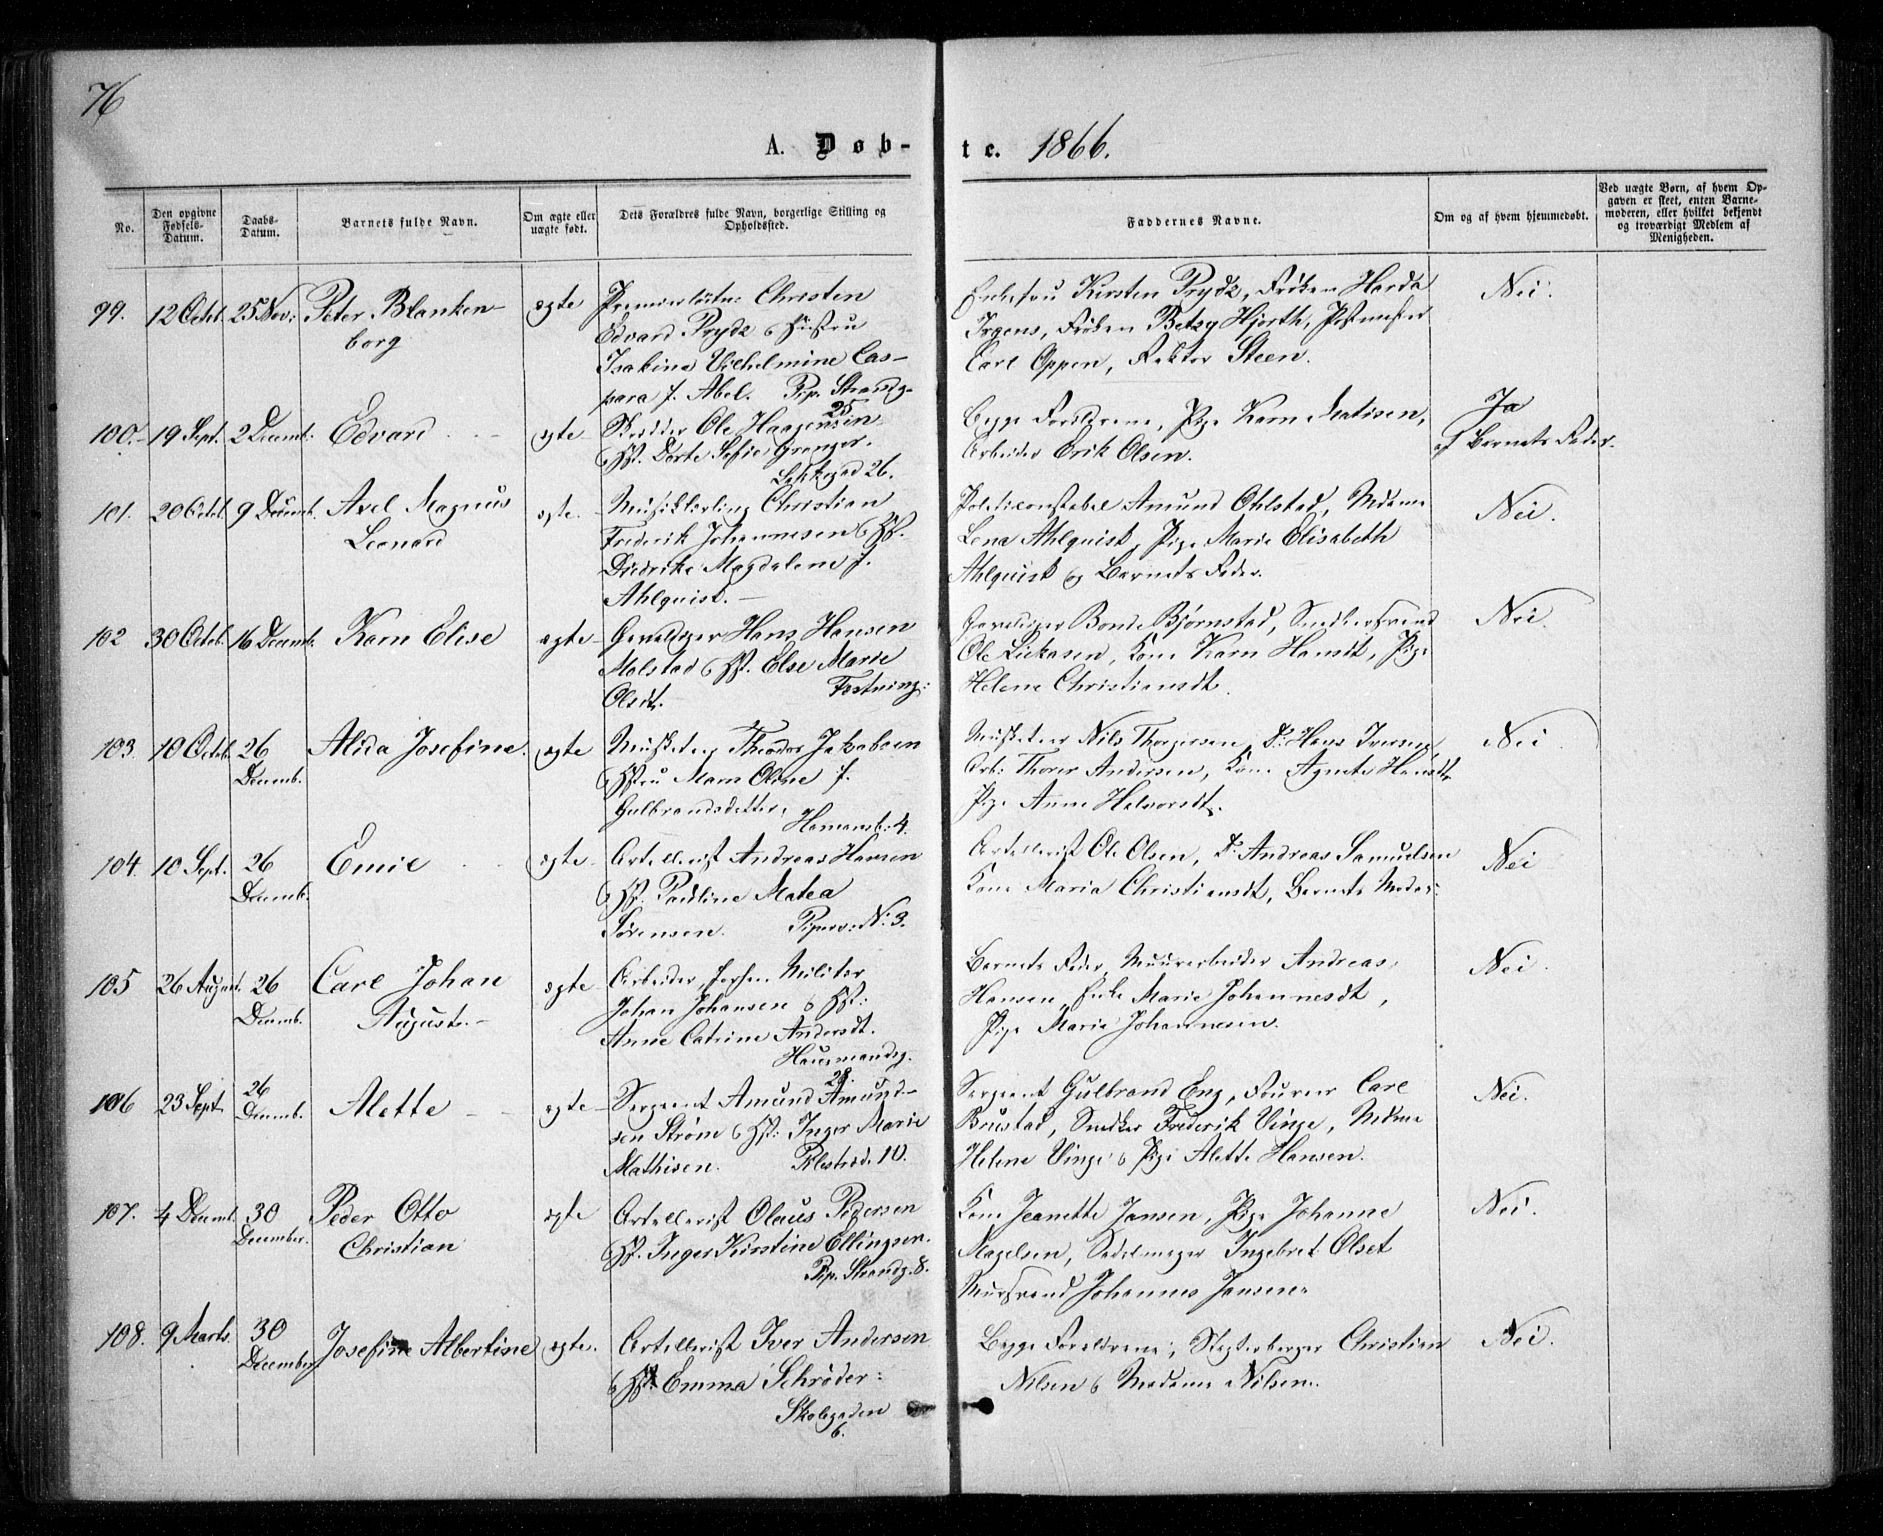 76
A. Døb-
te. 1866.
No.
Den opgivne Fødsels-Datum.
Daabs-Datum.
Barnets fulde Navn.
Om ægte eller uægte født.
Dets Forældres fulde Navn, borgerlige Stilling og Opholdssted.
Faddernes Navne.
Om og af hvem hjemmedøbt.
Ved uægte Børn, af hvem Op-
gaven er skeet, enten Barne-
moderen, eller hvilket bekjendt
og troværdigt Medlem af
Menigheden.
99. 12 Octbr. 25 Nov: Peter Blanken-
borg
ægte
Premierløitn: Christen
Edvard Prydz & Hustru
Isakine Vilhelmine Cas-
para f. Abel. Pip. Strandg.
25
Enkefru Kirsten Prydz, Frøken Harda
Irgens, Frøken Betzy Hjorth, Postmester
Carl Oppen, Rektor Steen.
Nei.
100. 19 Sept. 2 Decemb: Edvard
ægte
Skredder Ole Haagensen
& Hst. Dorte Sofie Granger.
26.
Begge Forældrene, Pige Karn Matisen,
Arbeider Erik Olsen.
Ja
af Barnets Fader.
101. 20 Octbr. 9 Decemb. Axel Magnus
Leonard
ægte
Musiklærling Christian
Frederik Johannesen & Hst.
Didrike Magdalene f.
Ahlquist.
Politiconstabel Amund Ohlstad, Mdame
Lena Ahlquist, Pige Marie Elisabeth
Ahlquist og Barnets Fader.
Nei.
102 30 Octob. 16 Decemb. Karn Elise
ægte
Gevaldiger Hans Hansen
Molstad & Hst. Else Marie
Olsdt. Fæstning:
Gevaldiger Bond Bjørnstad, Snedkersvend
Ole Lickasen, Kone Karn Hansdt, Pige
Helene Christiansdt.
Nei.
103. 10 Octob. 26
Decemb.
Alida Josefine.
ægte
Musketeer Theodor Jakobsen
& Hstru Maren Oline f.
Gulbrandsdatter, Hamansb: 4.
Musketeer Nils Thorgersen, Do. Hans Iversen,
Arb: Thorer Andersen, Kone Agnete Hansdt,
Pige Anne Halvorsdt.
Nei
104. 10 Sept. 26
Decemb.
Emil
ægte
Artellerist Andreas Hansen
& Hst. Pauline Matea
Sørensen. Piperv: N: 3.
Artellerist Ole Olsen, Do. Andreas Samuelsen
Kone Maria Christiansdt, Barnets Moder:
Nei
105 26 August. 26
Decemb.
Carl Johan
August.
ægte
Arbeider, forhen Militær
Johan Johansen & Hst:
Anne Catrine Andersdt.
Hausmandsg.
28.
Barnets Fader, Muurarbeider Andreas
Hansen, Enke Marie Johannesdt,
Pige Marie Johannesen.
Nei.
106 23 Sept. 26
Decemb.
Alette
ægte
Sergeant Amund Amund-
sen Strøm & Hst: Inger Marie
Mathisen. Pilestræde 10.
Sergeant Gulbrand Eng, Fourer Carl
Brustad, Snedker Frederik Vinge, Mdme
Helene Vinge & Pige Alette Hansen.
Nei.
107. 4 Decemb. 30
December.
Peder Otto
Christian
ægte
Artellerist Olaus Pedersen
& Hst. Inger Kirstine Ellingsen.
Pip. Strandg. 8.
Kone Jeanette Jansen, Pige Johanne
Magelsen, Sadelmager Ingebret Olset
Mursvend Johannes Jansen
Nei.
108. 9 Marts. 30
December
Josefine Albertine
ægte.
Artellerist Iver Andersen
& Hst. Emma Schrøder:
Skolegaden
6.
Begge Forældrene, Christian
Nilsen & Madame Nilsen.
Nei.